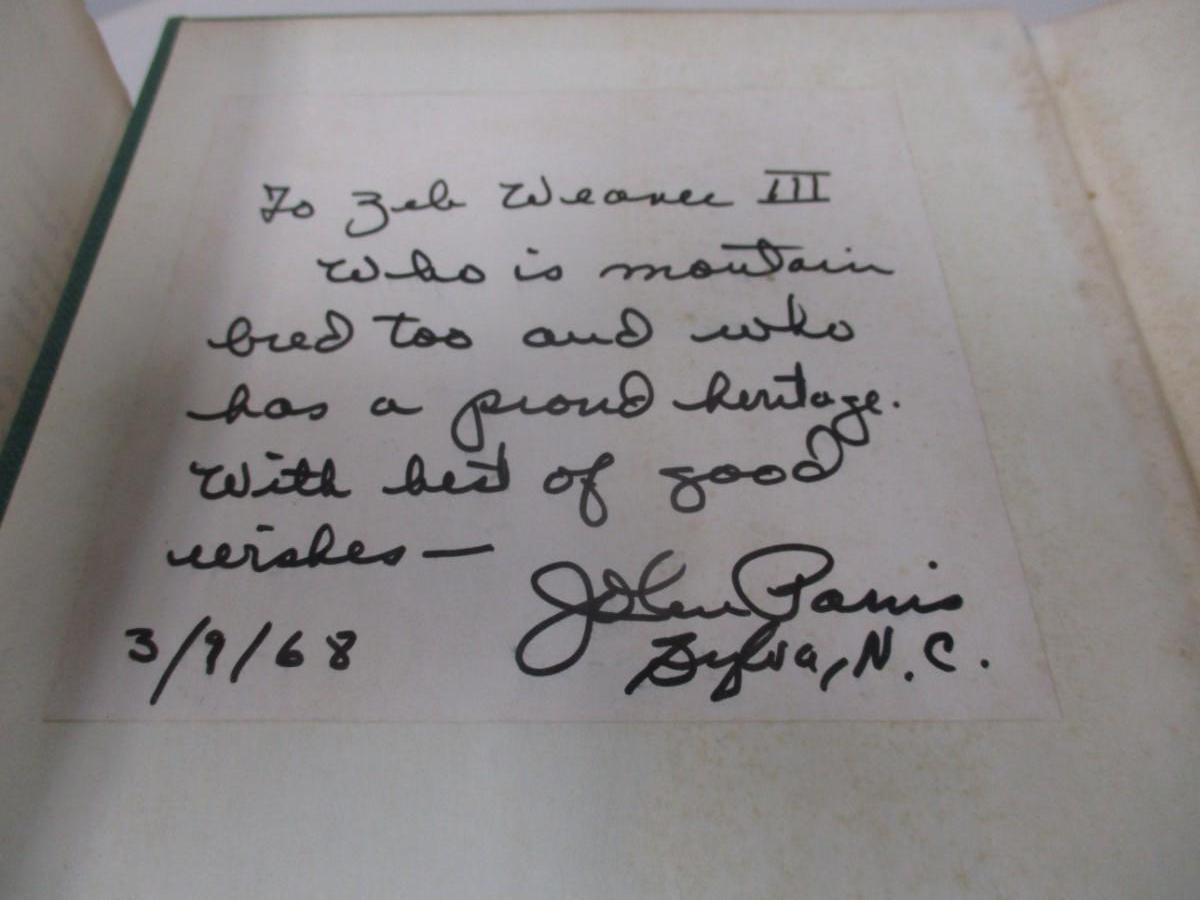 To Zeb Weaver III
Who is mountain
bred too and who
has a proud heritage.
With best of good
wishes —
John Parris
3/9/68
Sylva, N.C.